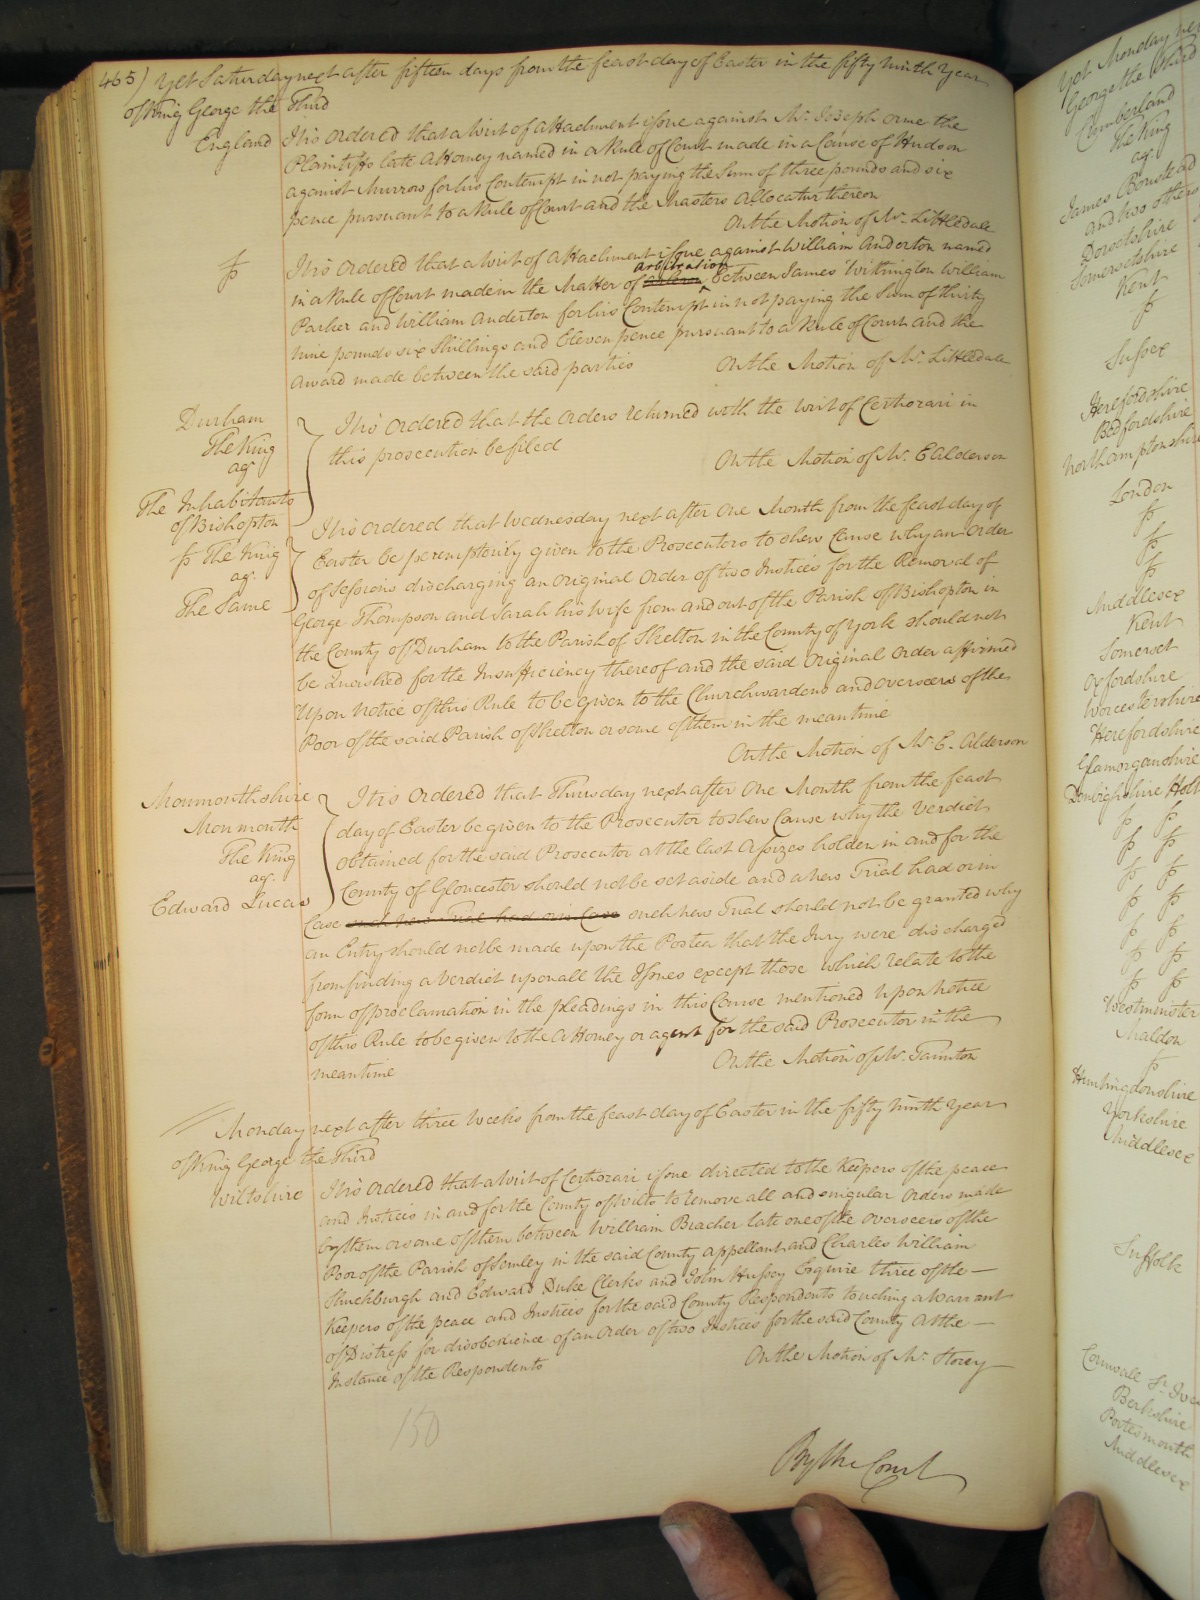 465) Yet Saturday next after fifteen days from the feast day of Easter in the fifty ninth Year
of King George the Third
England It is Ordered that a Writ of Attachment issue against Mr. Joseph Orme the
Plaintiffs late Attorney named in a Rule of Court made in a Cause of Hudson
against Murrow for his Contempt in not paying the Sum of three pounds and six
pence pursuant to a Rule of Court and the Masters Allocatur thereon
On the Motion of Mr. Littledale
It is Ordered that a Writ of Attachment issue against William Anderton named
arbitration
in a Rule of Court made in the Matter of between James Withington William
Parker and William Anderton for his Contempt in not paying the Sum of thirty
nine pounds six Shillings and Eleven pence pursuant to a Rule of Court and the
Award made between the said parties On the Motion of Mr. Littledale
Durham
The King
agt.
The Inhabitants
of Bishopton
It is Ordered that the Orders returned with the Writ of Certiorari in
this prosecution be filed On the Motion of Mr. E Alderson
The King
agt.
The Same
It is Ordered that Wednesday next after One Month from the feast day of
Easter be peremptorily given to the Prosecutors to shew Cause why an Order
of Sessions discharging an Original Order of two Justices for the Removal of
George Thompson and Sarah his Wife from and out of the Parish of Bishopton in
the County of Durham to the Parish of Skelton in the County of York should not
be Quashed for the Insufficiency thereof and the said Original Order affirmed
Upon Notice of this Rule to be given to the Churchwardens and Overseers of the
Poor of the said Parish of Skelton or some of them in the mean time
On the Motion of Mr. E. Alderson
Monmouthshire
Monmouth
The King
agt.
Edward Lucas
It is Ordered that Thursday next after One Month from the feast
day of Easter be given to the Prosecutor to shew Cause why the Verdict
obtained for the said Prosecutor at the last Assizes holden in and for the
County of Gloucester should not be set aside and a new Trial had or in
Case such new Trial had or in Case such new Trial should not be granted why
an Entry should not be made upon the Postea that the Jury were discharged
from finding a Verdict upon all the Issues except those which relate to the
form of proclamation in the pleadings in this Cause mentioned Upon Notice
of this Rule to be given to the Attorney or agent for the said Prosecutor in the
meantime On the Motion of Mr. Taunton
Monday next after three Weeks from the feast day of Easter in the fifty ninth Year
of King George the Third
Wiltshire It is Ordered that a Writ of Certiorari issue directed to the Keepers of the peace
and Justices in and for the County of Wilts to remove all and singular Orders made
by them or some of them between William Bracher late one of the Overseers of the
Poor of the Parish of Semley in the said County Appellant and Charles William
Shuckburgh and Edward Duke Clerks and John Hussey Esquire three of the
Keepers of the peace and Justices for the said County Respondents touching a Warrant
of Distress for disobedience of an Order of two Justices for the said County at the
Instance of the Respondents On the Motion of Mr. Storey
150
By the Court
Yet Monday
George the Third
Cumberland
The King
agt.
James Boustead
and two others
Dorsetshire
Somersetshire
Kent
Sussex
Herefordshire
Bedfordshire
Northamptonshire
London
Middlesex
Kent
Somerset
Oxfordshire
Worcestershire
Herefordshire
Glamorganshire
Denbighshire Holt
Westminster
Maldon
Huntingdonshire
Yorkshire
Middlesex
Suffolk
Cornwall St. Ives
Berkshire
Portsmouth
Middlesex